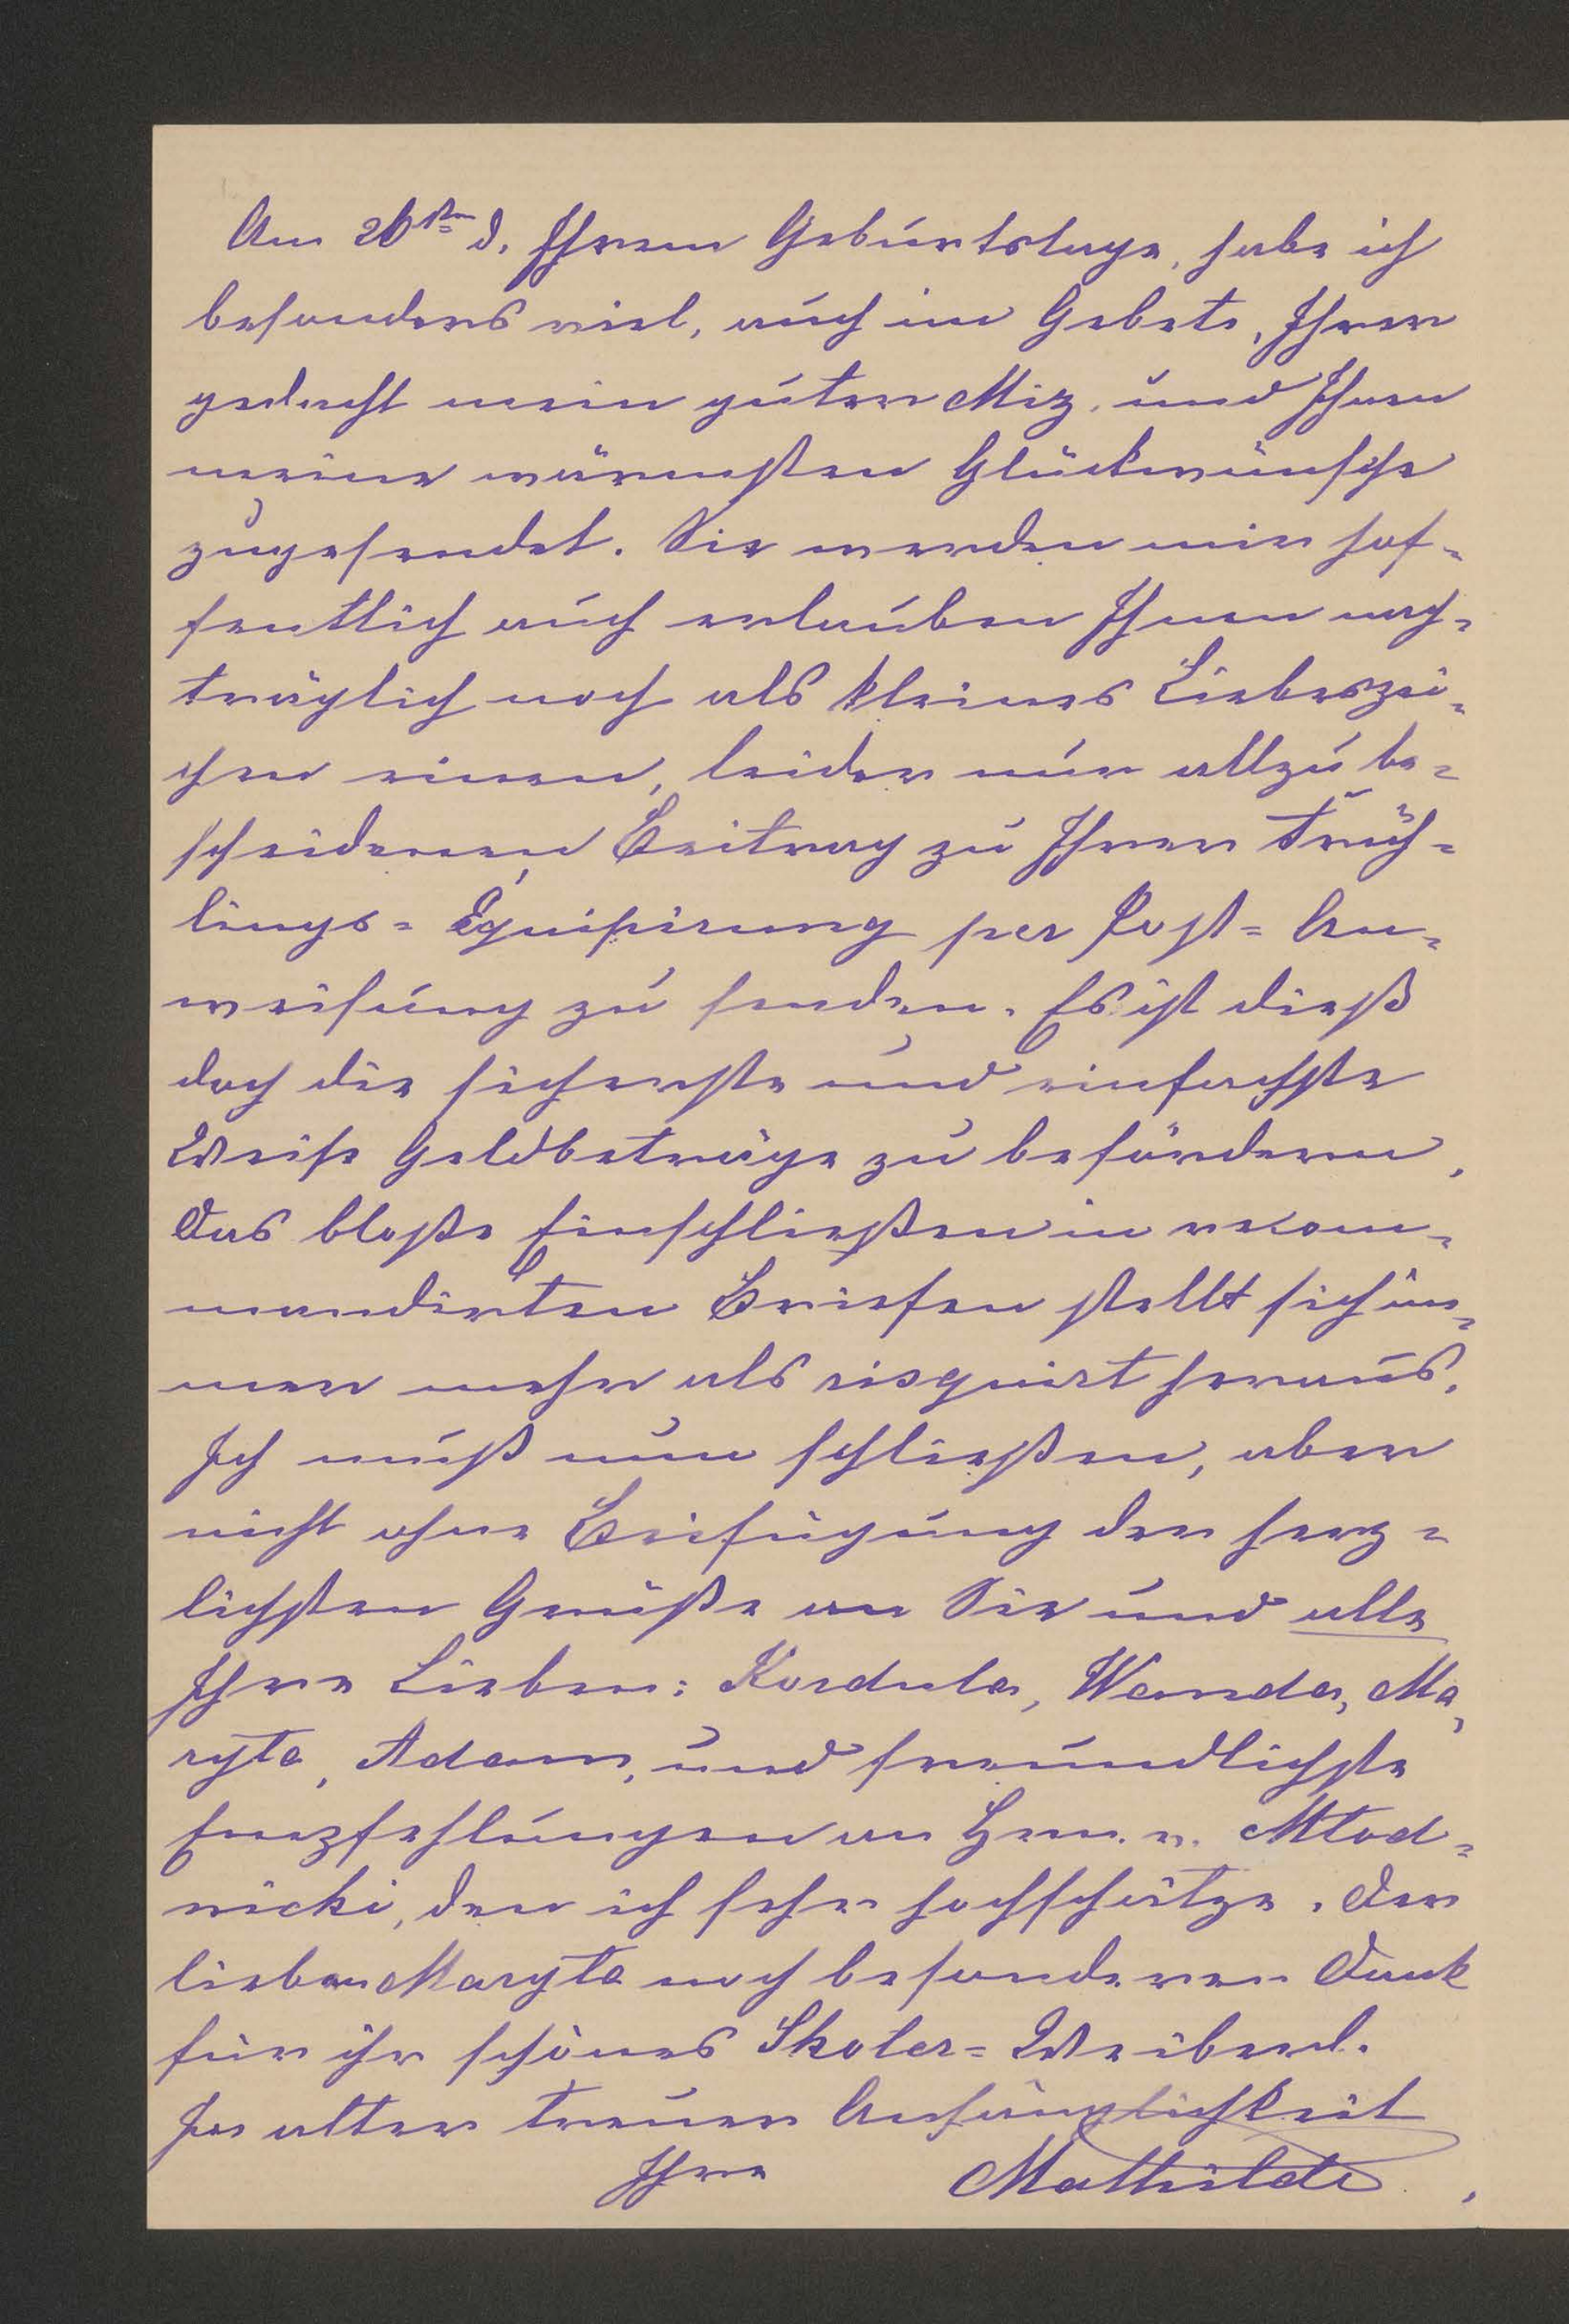 Am 26ᵗᵉⁿ d. Ihrem Geburtstage, habe ich
besonders viel, auch im Gebete, Ihrer
gedacht mein guter Miz, und Ihnen
meine wärmsten Glückwünsche
zugesendet. Sie werden mir hof=
fentlich auch erlauben Ihnen nach=
träglich noch als kleines Liebeszei=
chen einen, leider nur allzu be=
scheidenen Beitrag zu Ihrer Früh=
lings=Equipirung per Post=An=
weisung zu senden. Es ist dieß
doch die sicherste und einfachste
Weise Geldbeträge zu befördern,
das bloße Einschließen in recom=
mandirten Briefen stellt sich im=
mer mehr als risquirt heraus.
Ich muß nun schließen, aber
nicht ohne Beifügung der herz=
lichsten Grüße an Sie und alle
Ihre Lieben: Kordula, Wanda, Ma=
ryta, Adam, und freundlichste
Empfehlungen an Hrn. v. Młod=
nicki, den ich sehr hochschätze. Der
lieben Maryta noch besonderen Dank
für ihr schönes Skoler=Weiberl.
In alter treuer Anhänglichkeit
Ihre Mathilde.